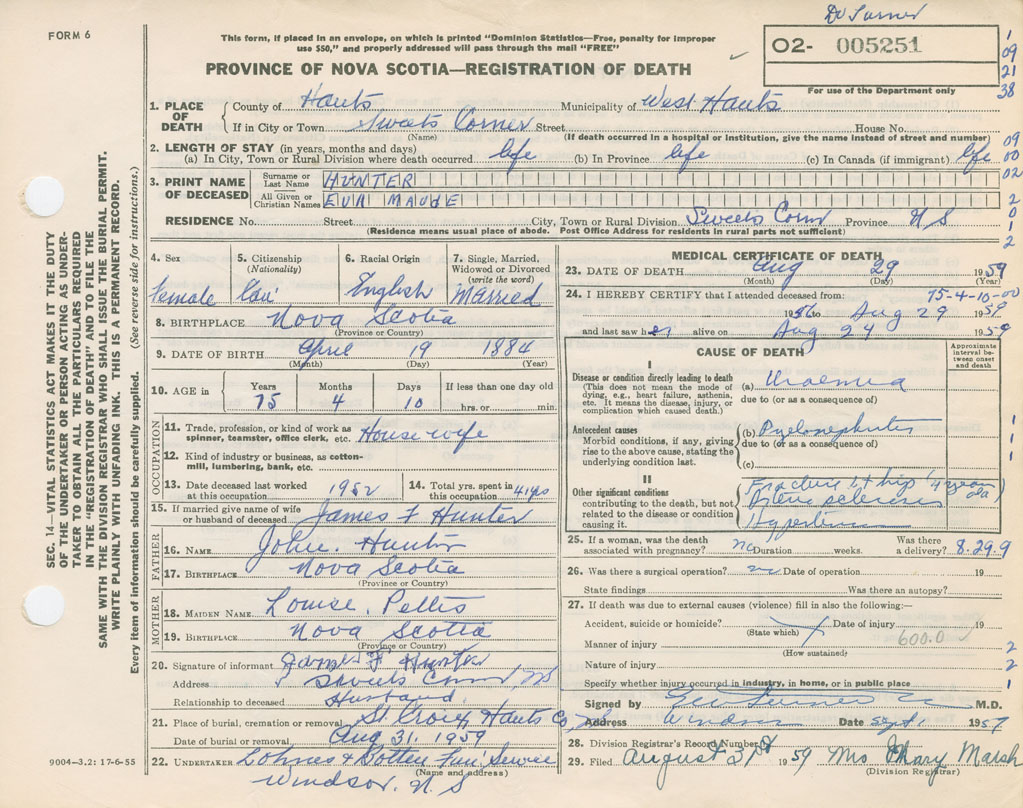 Dr Turner
FORM 6
This form, if placed in an envelope, on which is printed "Dominion Statistics—Free, penalty for improper
use $50," and properly addressed will pass through the mail "FREE"
02- 005251
For use of the Department only
1
09
21
38
PROVINCE OF NOVA SCOTIA—REGISTRATION OF DEATH
1. PLACE OF DEATH County of Hants Municipality of West Hants
If in City or Town Sweets Corner Street House No.
(Name) (If death occurred in a hospital or institution, give the name instead of street and number)
09
2. LENGTH OF STAY (in years, months and days)
(a) In City, Town or Rural Division where death occurred life (b) In Province life (c) In Canada (if immigrant) life
00
02
3. PRINT NAME OF DECEASED
Surname or Last Name HUNTER
All Given or Christian Names EVA MAUDE
2
0
1
2
RESIDENCE No. Street City, Town or Rural Division Sweets Corner Province N S
(Residence means usual place of abode. Post Office Address for residents in rural parts not sufficient)
SEC. 14—VITAL STATISTICS ACT MAKES IT THE DUTY
OF THE UNDERTAKER OR PERSON ACTING AS UNDER-
TAKER TO OBTAIN ALL THE PARTICULARS REQUIRED
IN THE "REGISTRATION OF DEATH" AND TO FILE THE
SAME WITH THE DIVISION REGISTRAR WHO SHALL ISSUE THE BURIAL PERMIT.
WRITE PLAINLY WITH UNFADING INK. THIS IS A PERMANENT RECORD.
Every item of information should be carefully supplied. (See reverse side for instructions.)
4. Sex
Female
5. Citizenship
(Nationality)
Can
6. Racial Origin
English
7. Single, Married,
Widowed or Divorced
(write the word)
Married
8. BIRTHPLACE Nova Scotia
(Province or Country)
9. DATE OF BIRTH April 19 1884
(Month) (Day) (Year)
10. AGE in Years Months Days If less than one day old
75 4 10 hrs. or min.
OCCUPATION
11. Trade, profession, or kind of work as
spinner, teamster, office clerk, etc. House wife
12. Kind of industry or business, as cotton-
mill, lumbering, bank, etc.
13. Date deceased last worked
at this occupation 1952
14. Total yrs. spent in
this occupation 41 yrs
15. If married give name of wife
or husband of deceased James F Hunter
FATHER
16. NAME John Hunter
17. BIRTHPLACE Nova Scotia
(Province or Country)
MOTHER
18. MAIDEN NAME Louise
19. BIRTHPLACE Nova Scotia
(Province or Country)
20. Signature of informant James F Hunter
Address Sweets Corner, NS
Relationship to deceased Husband
21. Place of burial, cremation or removal St. Croix Hants Co,
Date of burial or removal Aug 31. 1959
22. UNDERTAKER Lohnes & Botten Fun' Service
(Name and address)
Windsor. N. S
9004—3.2: 17-6-55
MEDICAL CERTIFICATE OF DEATH
23. DATE OF DEATH Aug 29 1959
(Month) (Day) (Year)
24. I HEREBY CERTIFY that I attended deceased from: 75-4-10-00
1956 to Aug 29 1959
and last saw her alive on Aug 24 1959
CAUSE OF DEATH
Approximate
interval be-
tween onset
and death
I
Disease or condition directly leading to death
(This does not mean the mode of
dying, e.g., heart failure, asthenia,
etc. It means the disease, injury, or
complication which caused death.)
(a) Uraemia
due to (or as a consequence of)
Antecedent causes
Morbid conditions, if any, giving
rise to the above cause, stating the
underlying condition last.
(b) Pyelonephritis
due to (or as a consequence of)
(c)
1
1
1
II
Other significant conditions
contributing to the death, but not
related to the disease or condition
causing it.
Fracture Lt hip 4 years
Hypertension
25. If a woman, was the death
associated with pregnancy? no Duration weeks. Was there
a delivery? 8.29.9
26. Was there a surgical operation? no Date of operation 19
State findings Was there an autopsy?
27. If death was due to external causes (violence) fill in also the following:—
Accident, suicide or homicide? Date of injury 19
(State which)
600.0
Manner of injury
(How sustained)
2
Nature of injury
2
Specify whether injury occurred in industry, in home, or in public place
1
Signed by Turner M.D.
Address Windsor Date Sept 1 1959
28. Division Registrar's Record Number 58
29. Filed August 31 1959 Mrs Mary Marsh
(Division Registrar)